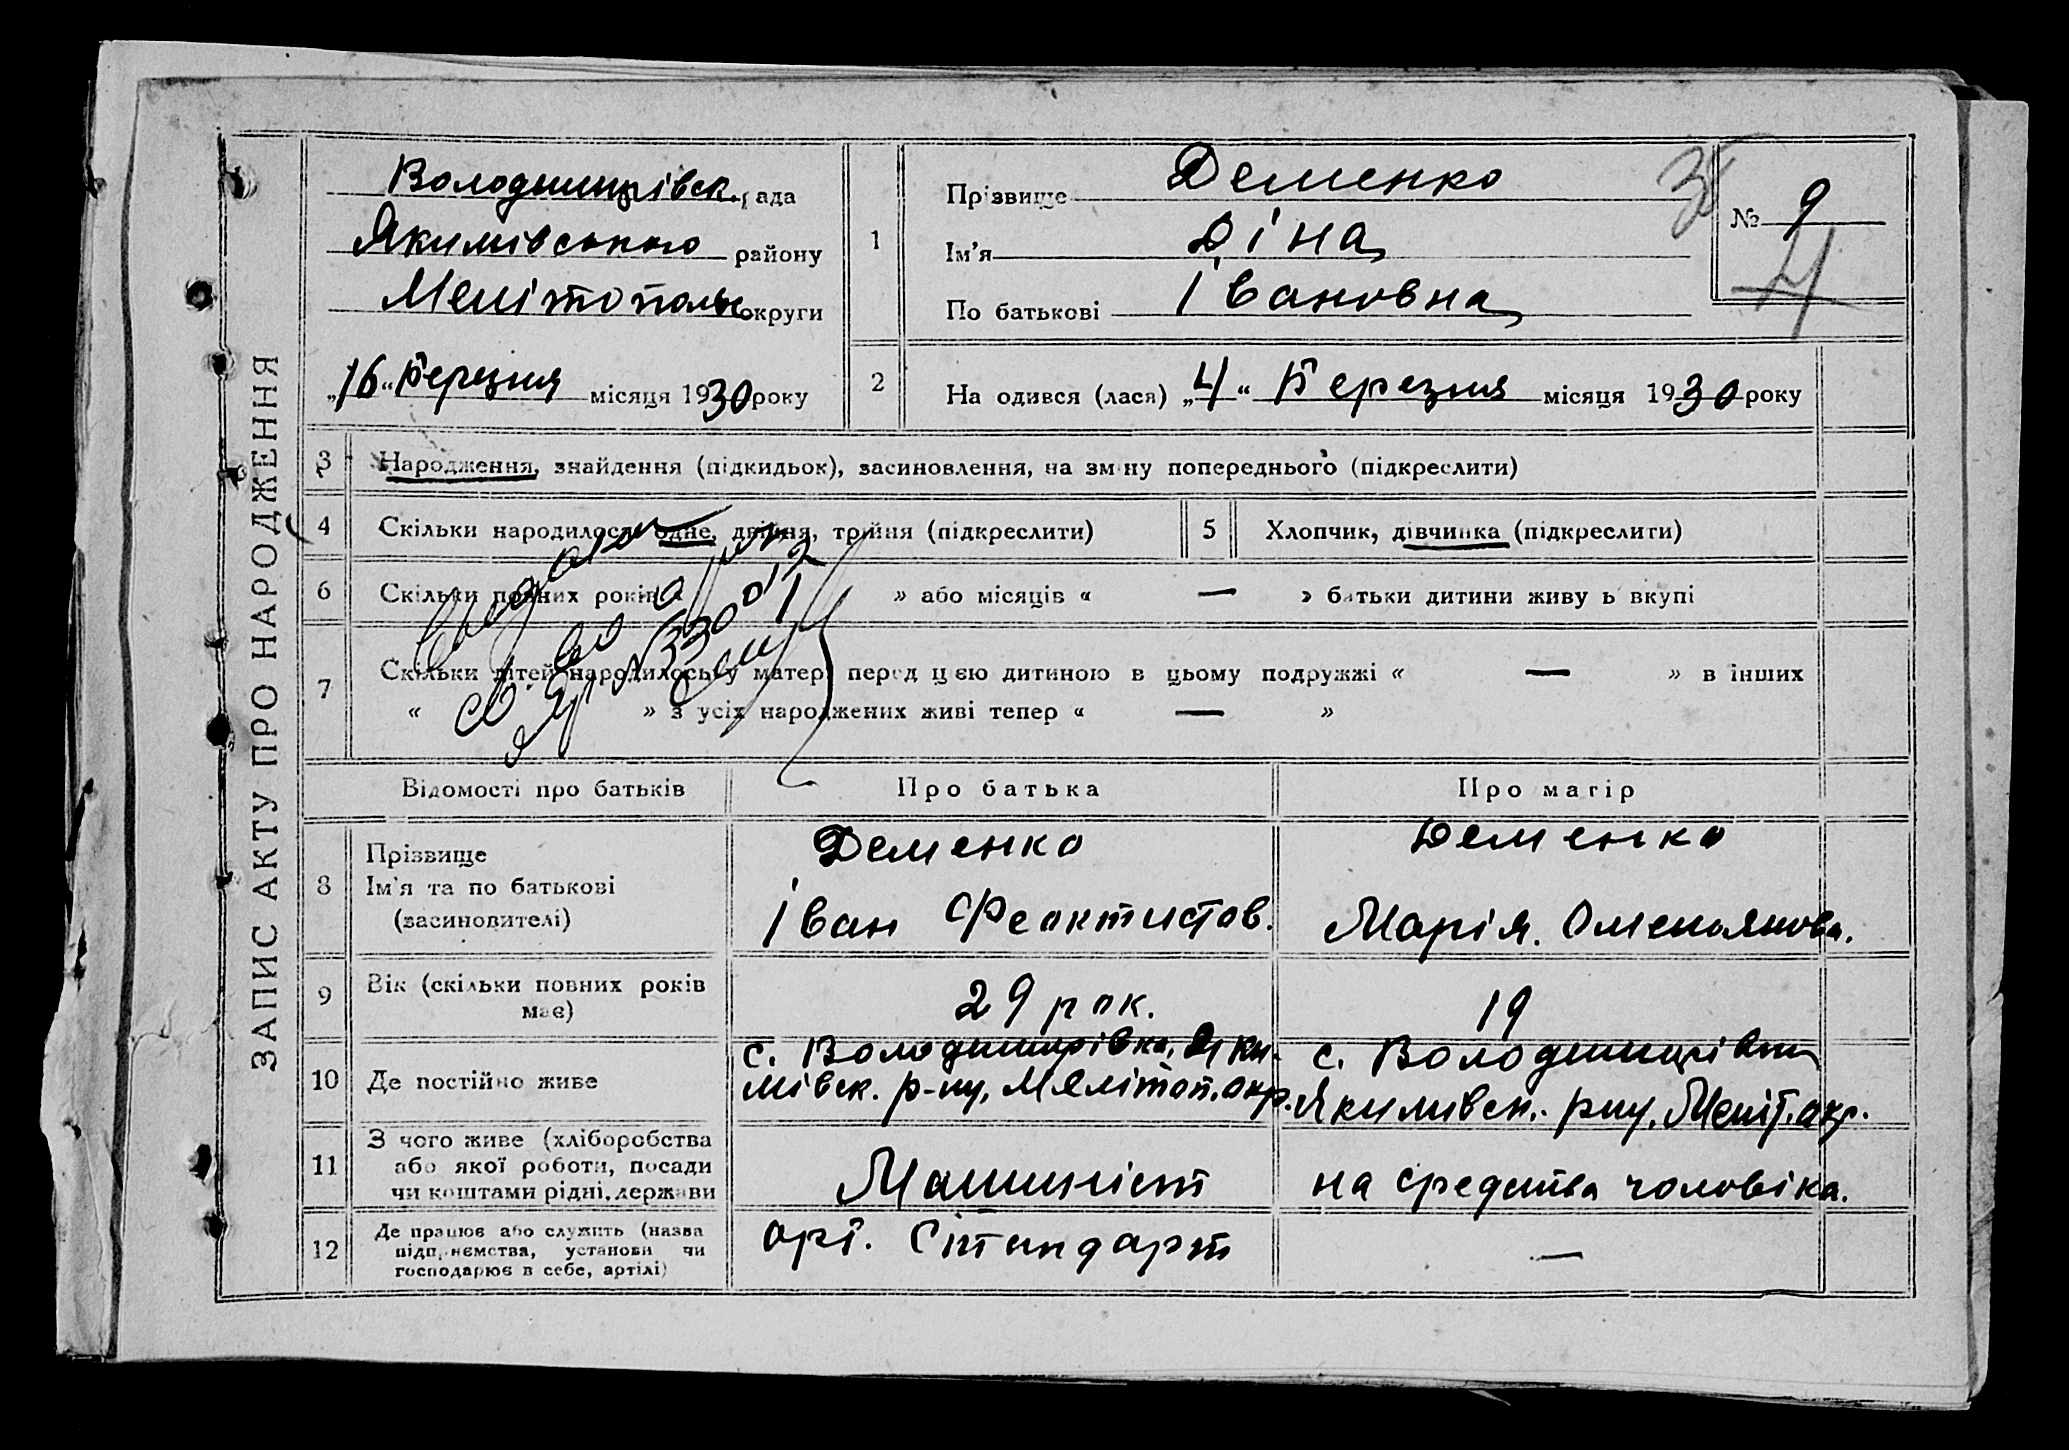 ЗАПИС АКТУ ПРО НАРОДЖЕННЯ
Володимирівск. рада
Якимівського району
Мелітопольс округи
„16“ Березня місяця 1930 року
1
Прізвище Деменко
Ім'я Діна
По батькові Івановна
№ 9
4
2
На одився (лася) „4“ Березня місяця 1930 року
3 Народження, знайдення (підкидьок), засиновлення, на зміну попереднього (підкреслити)
4 Скільки народилося одне, двійня, трійня (підкреслити)
5 Хлопчик, дівчинка (підкреслити)
6 Скільки повних років » або місяців « — » батьки дитини живуть вкупі
7 Скільки дітей народилось у матері перед цією дитиною в цьому подружжі « — » в інших
« » з усіх народжених живі тепер « — »
Відомості про батьків
Про батька
Про матір
8 Прізвище
Ім'я та по батькові
(засиновителі)
Деменко
Іван Феоктистов.
Деменко
Марія. Омельянова.
9 Вік (скільки повних років має)
29 рок.
19
10 Де постійно живе
с. Володимирівка, Яки-
мівск. р-ну, Мелітоп. окр.
с. Володимирівки
Якимівск. рну. Меліт. окр.
11 З чого живе (хліборобства
або якої роботи, посади
чи коштами рідні, держави
Машиніст
на средства чоловіка.
12 Де працює або служить (назва
підприємства, установи чи
господарює в себе, артілі)
арт. Стандарт
—